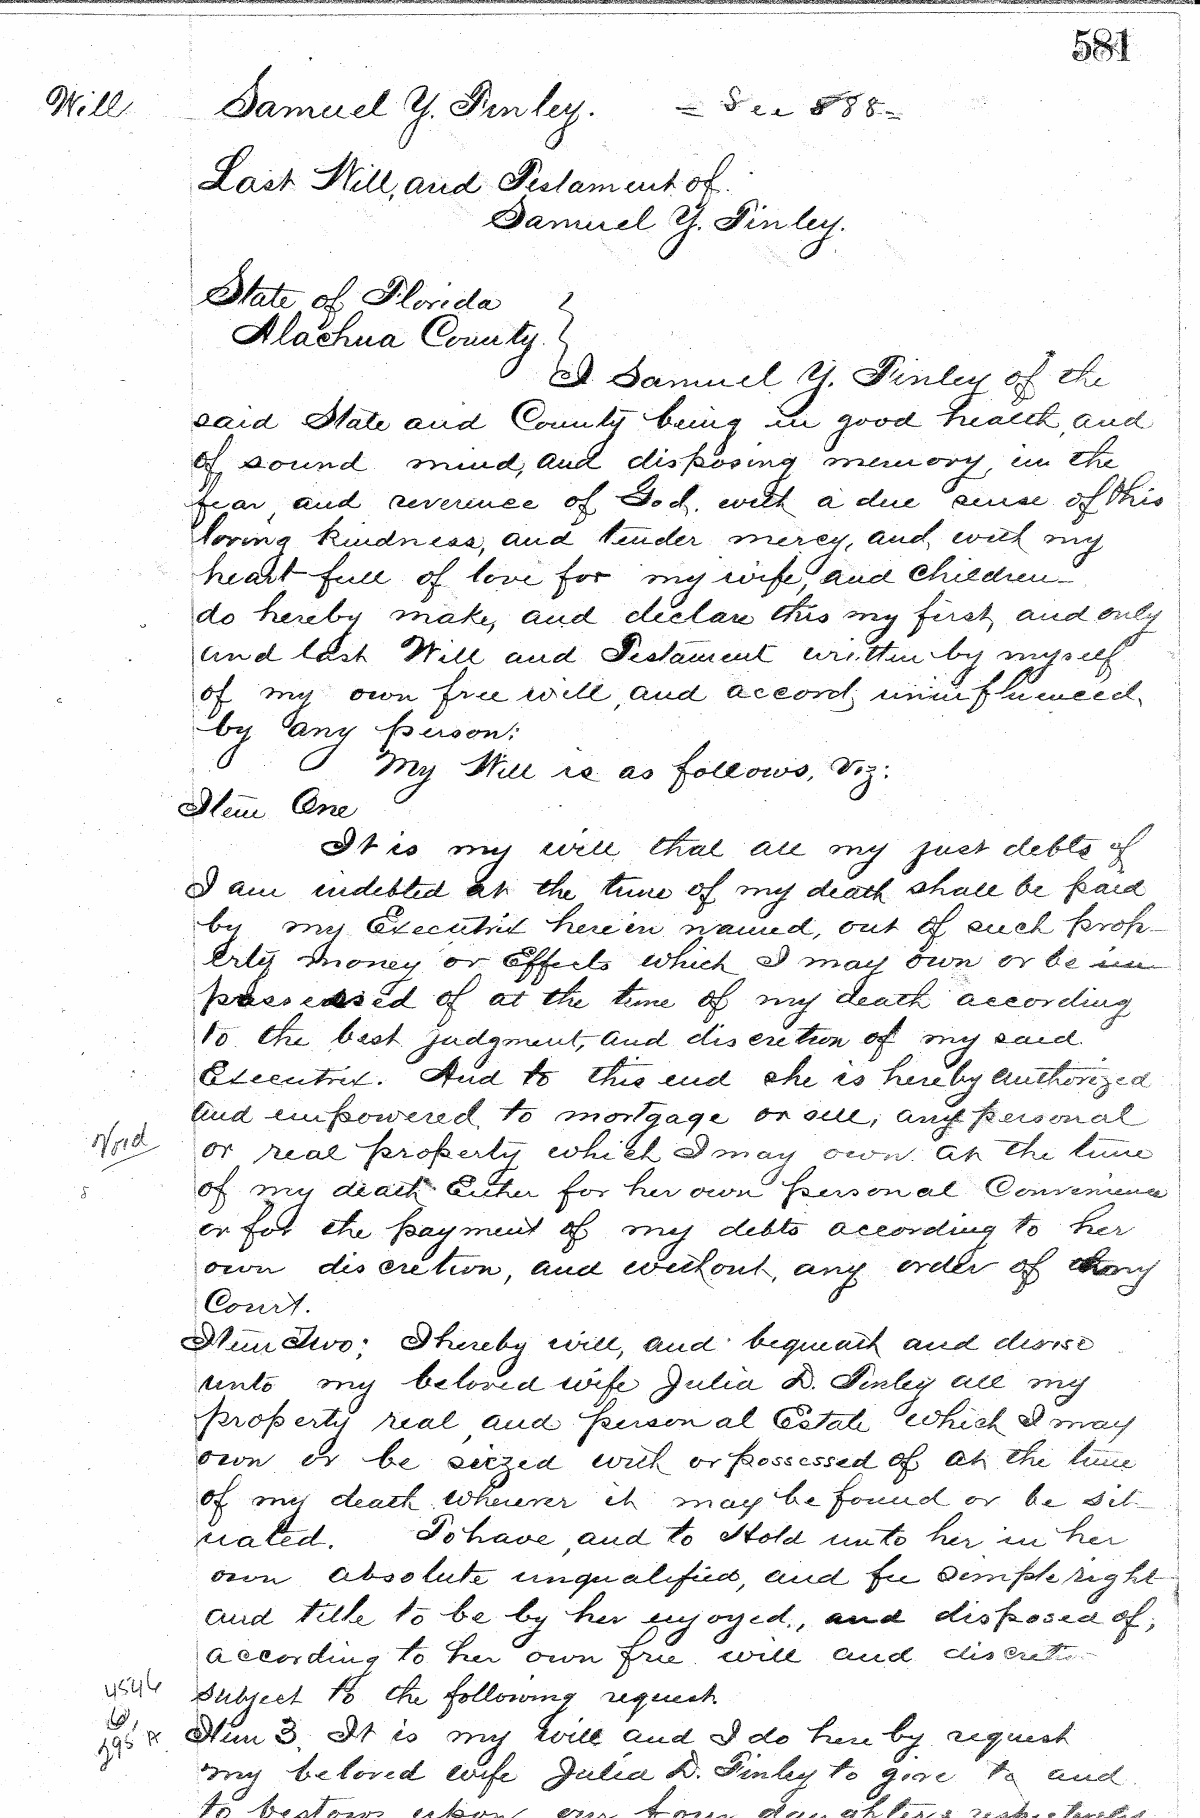 581
Will Samuel Y. Finley. = See 888 =
Last Will, and Testament of
Samuel Y. Finley.
State of Florida }
Alachua County. }
I Samuel Y. Finley of the
said State and County being in good health, and
of sound mind, and disposing memory, in the
fear, and reverence of God, with a due sense of this
loving kindness, and tender mercy, and, with my
heart full of love for my wife, and Children—
do hereby make, and declare this my first, and only
and last Will and Testament written by myself
of my own free will, and accord, uninfluenced,
by any person:
My Will is as follows, Viz:
Item One
It is my will that all my just debts if
I am indebted at the time of my death shall be paid
by my Executrix herein named, out of such prop-
erty money or Effects which I may own or be in
possessed of at the time of my death according
to the best judgment, and discretion of my said
Executrix. And to this end she is hereby authorized
and empowered to mortgage or sell, any personal
Void or real property which I may own at the time
of my death Either for her own personal Convenience
or for the payment of my debts according to her
own discretion, and without, any order of any
Court.
Item Two; I hereby will, and bequeath and devise
unto my beloved wife Julia D. Finley all my
property real, and personal Estate which I may
own or be siezed with or possessed of at the time
of my death wherever it may be found or be sit-
uated. To have, and to Hold unto her in her
own absolute unqualified, and fee simple right
and title to be by her enjoyed, and disposed of,
according to her own free will and discreti
4546 subject to the following request.
Item 3. It is my will and I do here by request
my beloved wife Julia D. Finley to give to and
to bestow upon our four daughters respectively